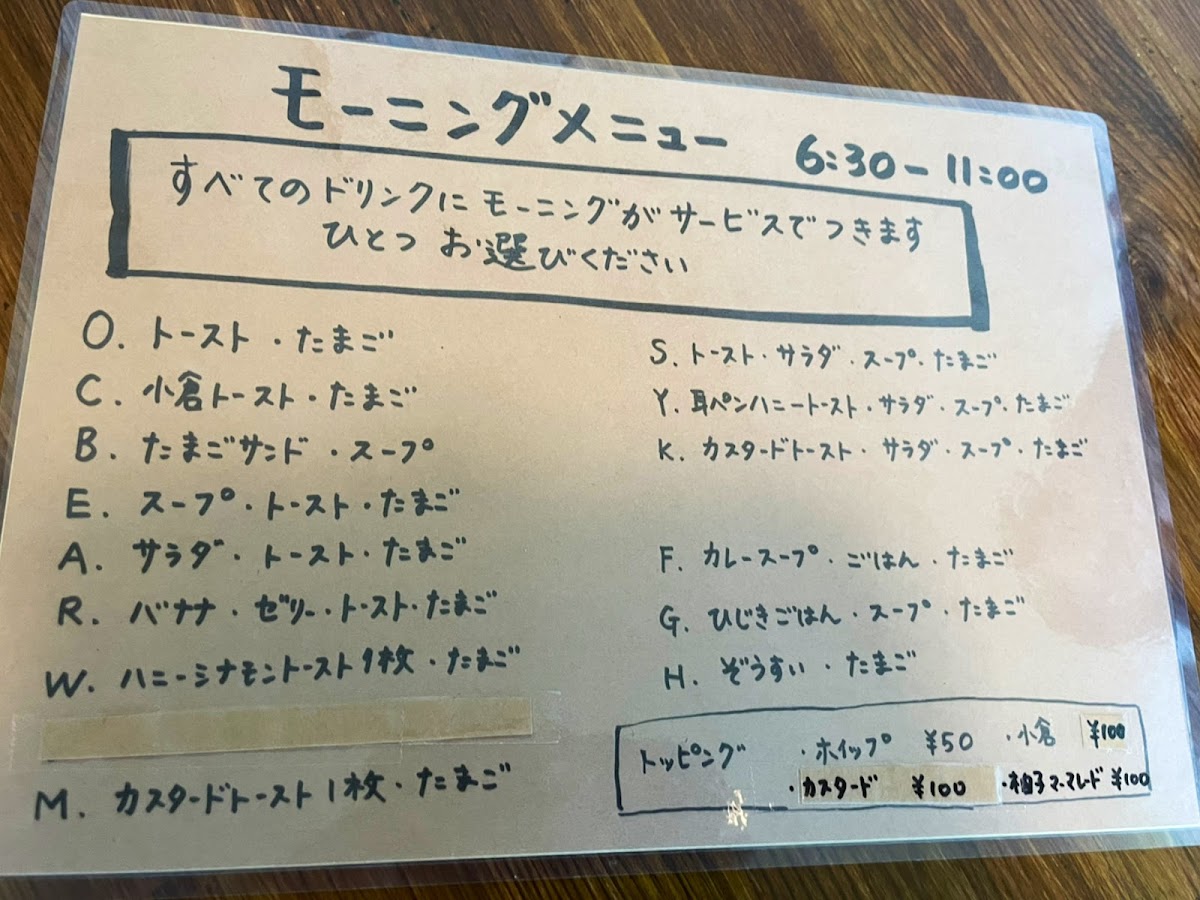 モーニングメニュー 6:30-11:00
すべてのドリンクにモーニングがサービスでつきます
ひとつお選びください
O. トースト・たまご
C. 小倉トースト・たまご
B. たまごサンド・スープ
E. スープ・トースト・たまご
A. サラダ・トースト・たまご
R. バナナ・ゼリー・トースト・たまご
W. ハニーシナモントースト1枚・たまご
M. カスタードトースト1枚・たまご
S. トースト・サラダ・スープ・たまご
Y. 耳ペンハニートースト・サラダ・スープ・たまご
K. カスタードトースト・サラダ・スープ・たまご
F. カレースープ・ごはん・たまご
G. ひじきごはん・スープ・たまご
H. ぞうすい・たまご
トッピング ・ホイップ ¥50 ・小倉 ¥100
・カスタード ¥100 ・柚子マーマレード ¥100